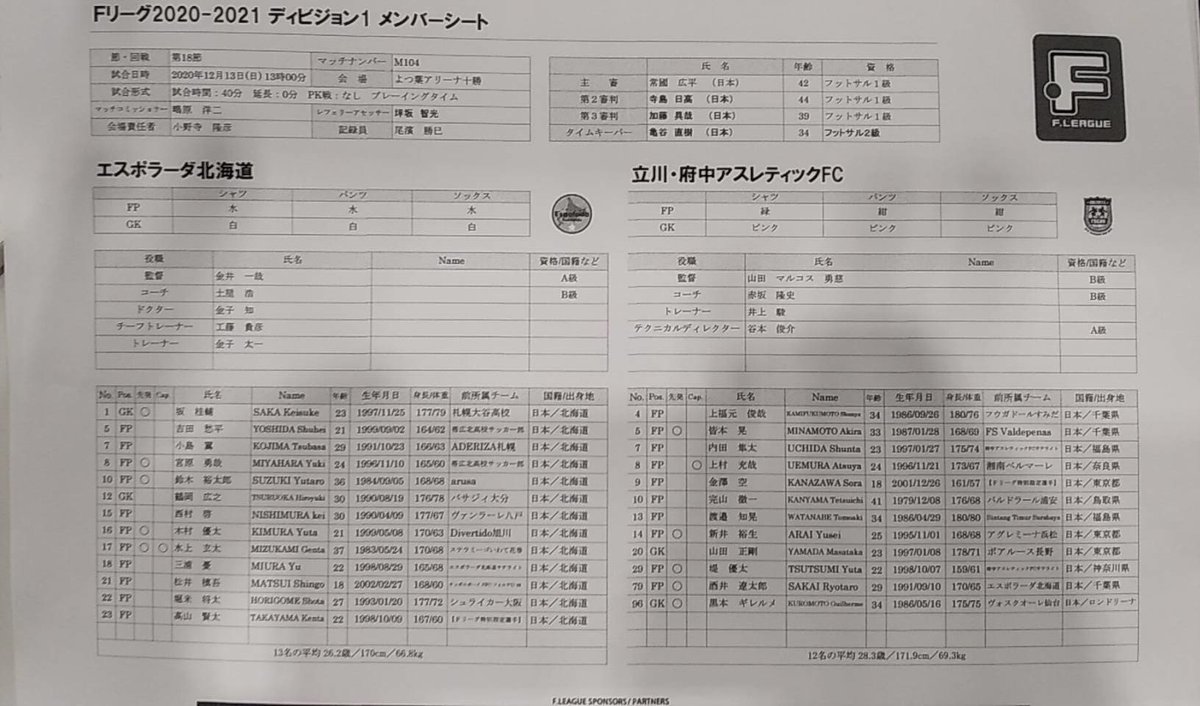 Fリーグ2020-2021 ディビジョン1 メンバーシート
節・回戦 第18節 マッチナンバー M104
試合日時 2020年12月13日(日) 13時00分 会 場 よつ葉アリーナ十勝
試合形式 試合時間：40分 延長：0分 PK戦：なし プレーイングタイム
マッチコミッショナー 鳴原 洋二 レフェリーアセッサー 坪坂 智光
会場責任者 小野寺 隆彦 記録員 尾濱 勝巳
氏 名 年齢 資 格
主 審 常國 広平 （日本） 42 フットサル1級
第2審判 寺島 日高 （日本） 44 フットサル1級
第3審判 加藤 具哉 （日本） 39 フットサル1級
タイムキーパー 亀谷 直樹 （日本） 34 フットサル2級
F.LEAGUE
エスポラーダ北海道
シャツ パンツ ソックス
FP 水 水 水
GK 白 白 白
Espolada
役職 氏名 Name 資格/国籍など
監督 金井 一哉 A級
コーチ 土屋 浩 B級
ドクター 金子 知
チーフトレーナー 工藤 貴彦
トレーナー 金子 太一
No. Pos. 先発 Cap. 氏名 Name 年齢 生年月日 身長/体重 前所属チーム 国籍/出身地
1 GK ○ 坂 桂輔 SAKA Keisuke 23 1997/11/25 177/79 札幌大谷高校 日本／北海道
5 FP 吉田 愁平 YOSHIDA Shuhei 21 1999/09/02 164/62 帯広北高校サッカー部 日本／北海道
7 FP 小島 翼 KOJIMA Tsubasa 29 1991/10/23 166/63 ADERIZA札幌 日本／北海道
8 FP ○ 宮原 勇哉 MIYAHARA Yuki 24 1996/11/10 165/60 帯広北高校サッカー部 日本／北海道
10 FP ○ 鈴木 裕太郎 SUZUKI Yutaro 36 1984/09/05 168/68 arusa 日本／北海道
12 GK 鶴岡 広之 TSURUOKA Hiroyuki 30 1990/08/19 176/78 バサジィ大分 日本／北海道
15 FP 西村 啓 NISHIMURA kei 30 1990/04/09 177/67 ヴァンラーレ八戸 日本／北海道
16 FP ○ 木村 優太 KIMURA Yuta 21 1999/05/08 170/63 Divertido旭川 日本／北海道
17 FP ○ ○ 水上 玄太 MIZUKAMI Genta 37 1983/05/24 170/68 ステラミーゴいわて花巻 日本／北海道
18 FP 三浦 憂 MIURA Yu 22 1998/08/29 165/68 エスポラーダ北海道サテライト 日本／北海道
21 FP 松井 慎吾 MATSUI Shingo 18 2002/02/27 168/60 日本／北海道
22 FP 堀米 将太 HORIGOME Shota 27 1993/01/20 177/72 シュライカー大阪 日本／北海道
23 FP 高山 賢太 TAKAYAMA Kenta 22 1998/10/09 167/60 【Fリーグ特別指定選手】 日本／北海道
13名の平均 26.2歳／170cm／66.8kg
立川・府中アスレティックFC
シャツ パンツ ソックス
FP 緑 紺 紺
GK ピンク ピンク ピンク
役職 氏名 Name 資格/国籍など
監督 山田 マルコス 勇慈 B級
コーチ 赤坂 隆史 B級
トレーナー 井上 駿
テクニカルディレクター 谷本 俊介 A級
No. Pos. 先発 Cap. 氏名 Name 年齢 生年月日 身長/体重 前所属チーム 国籍/出身地
4 FP 上福元 俊哉 KAMIFUKUMOTO Shunya 34 1986/09/26 180/76 フウガドールすみだ 日本／千葉県
5 FP ○ 皆本 晃 MINAMOTO Akira 33 1987/01/28 168/69 FS Valdepenas 日本／千葉県
7 FP 内田 隼太 UCHIDA Shunta 23 1997/01/27 175/74 府中アスレティックFCサテライト 日本／福島県
8 FP ○ 上村 充哉 UEMURA Atsuya 24 1996/11/21 173/67 湘南ベルマーレ 日本／奈良県
9 FP 金澤 空 KANAZAWA Sora 18 2001/12/26 161/57 【Fリーグ特別指定選手】 日本／東京都
10 FP 完山 徹一 KANYAMA Tetsuichi 41 1979/12/08 176/68 バルドラール浦安 日本／鳥取県
13 FP 渡邉 知晃 WATANABE Tomoaki 34 1986/04/29 180/80 Bintang Timur Surabaya 日本／福島県
14 FP ○ 新井 裕生 ARAI Yusei 25 1995/11/01 168/68 アグレミーナ浜松 日本／東京都
20 GK 山田 正剛 YAMADA Masataka 23 1997/01/08 178/71 ボアルース長野 日本／東京都
29 FP ○ 堤 優太 TSUTSUMI Yuta 22 1998/10/07 159/61 府中アスレティックFCサテライト 日本／神奈川県
79 FP ○ 酒井 遼太郎 SAKAI Ryotaro 29 1991/09/10 170/65 エスポラーダ北海道 日本／千葉県
96 GK ○ 黒本 ギレルメ KUROMOTO Guilherme 34 1986/05/16 175/75 ヴォスクオーレ仙台 日本／ロンドリーナ
12名の平均 28.3歳／171.9cm／69.3kg
F.LEAGUE SPONSORS / PARTNERS